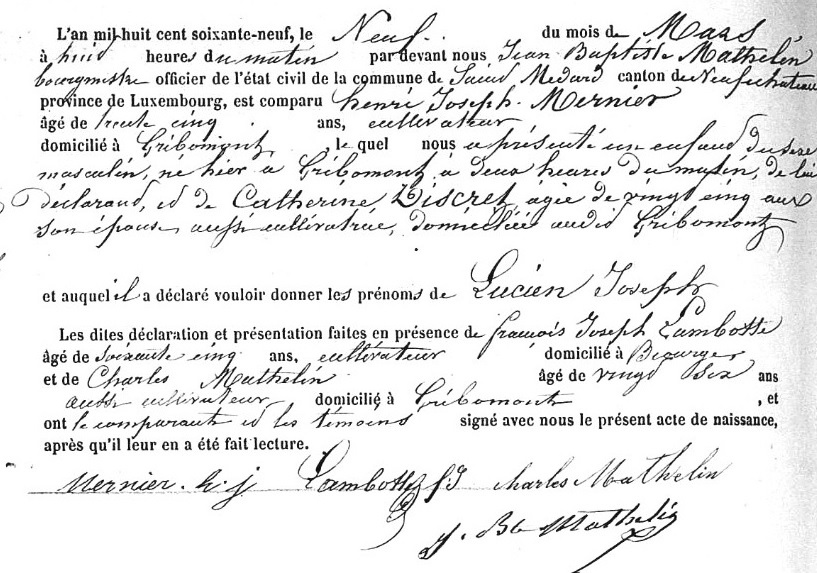 L'an mil-huit cent soixante-neuf, le Neuf du mois de Mars
à huid heures du matin par devant nous Jean Baptiste Mathelin
bourgmestre officier de l'état civil de la commune de Saint Médard canton de Neufchateau
province de Luxembourg, est comparu henri Joseph Mernier
âgé de trente cinq ans, cultivateur
domicilié à Gribomont, le quel nous a présenté un enfand du sexe
masculin, né hier à Gribomont à deux heures du matin, de lui
déclarand, id de Catherine Discret, agée de vingt cinq ans
son épouse aussi cultivatrice, domiciliée audid Gribomont
et auquel il a déclaré vouloir donner les prénoms de Lucien Joseph
Les dites déclaration et présentation faites en présence de françois Joseph Lambotte
âgé de soixante cinq ans, cultivateur domicilié à
et de Charles Mathelin âgé de vingd Six ans
aussi cultivateur, domicilié à Gribomont, et
ont le comparant id les témoins signé avec nous le présent acte de naissance,
après qu'il leur en a été fait lecture.
Mernier. h. j Lambotte f J Charles Mathelin
J. Bte Mathelin